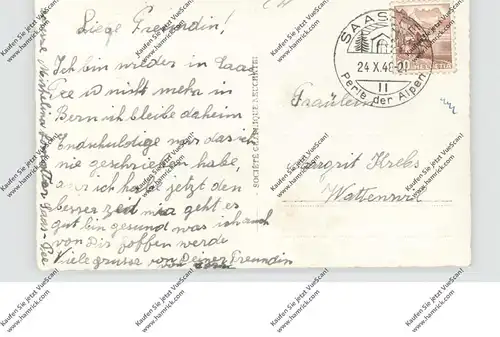 Liege Freundin!
Ich bin wilder in Saas
Fee is nicht mehr in
Bern ich bleibe daheim
Endschuldige mir das ich
nie geschrieben habe
aur ich hab jetzt den
besser zeid mia geht es
gut bin gesund was ich auch
von Dir foffen werde
Viele grusse von Deiner Freundin
SOCIÉTÉ
SAAS
24 X.48
II
Perle der Alpen
HELVETIA
Fräulein
Margrit Krebs
Wattenwil
Saas-Fee
Kaufen Sie jetzt VauSev!
www.hamrick.com